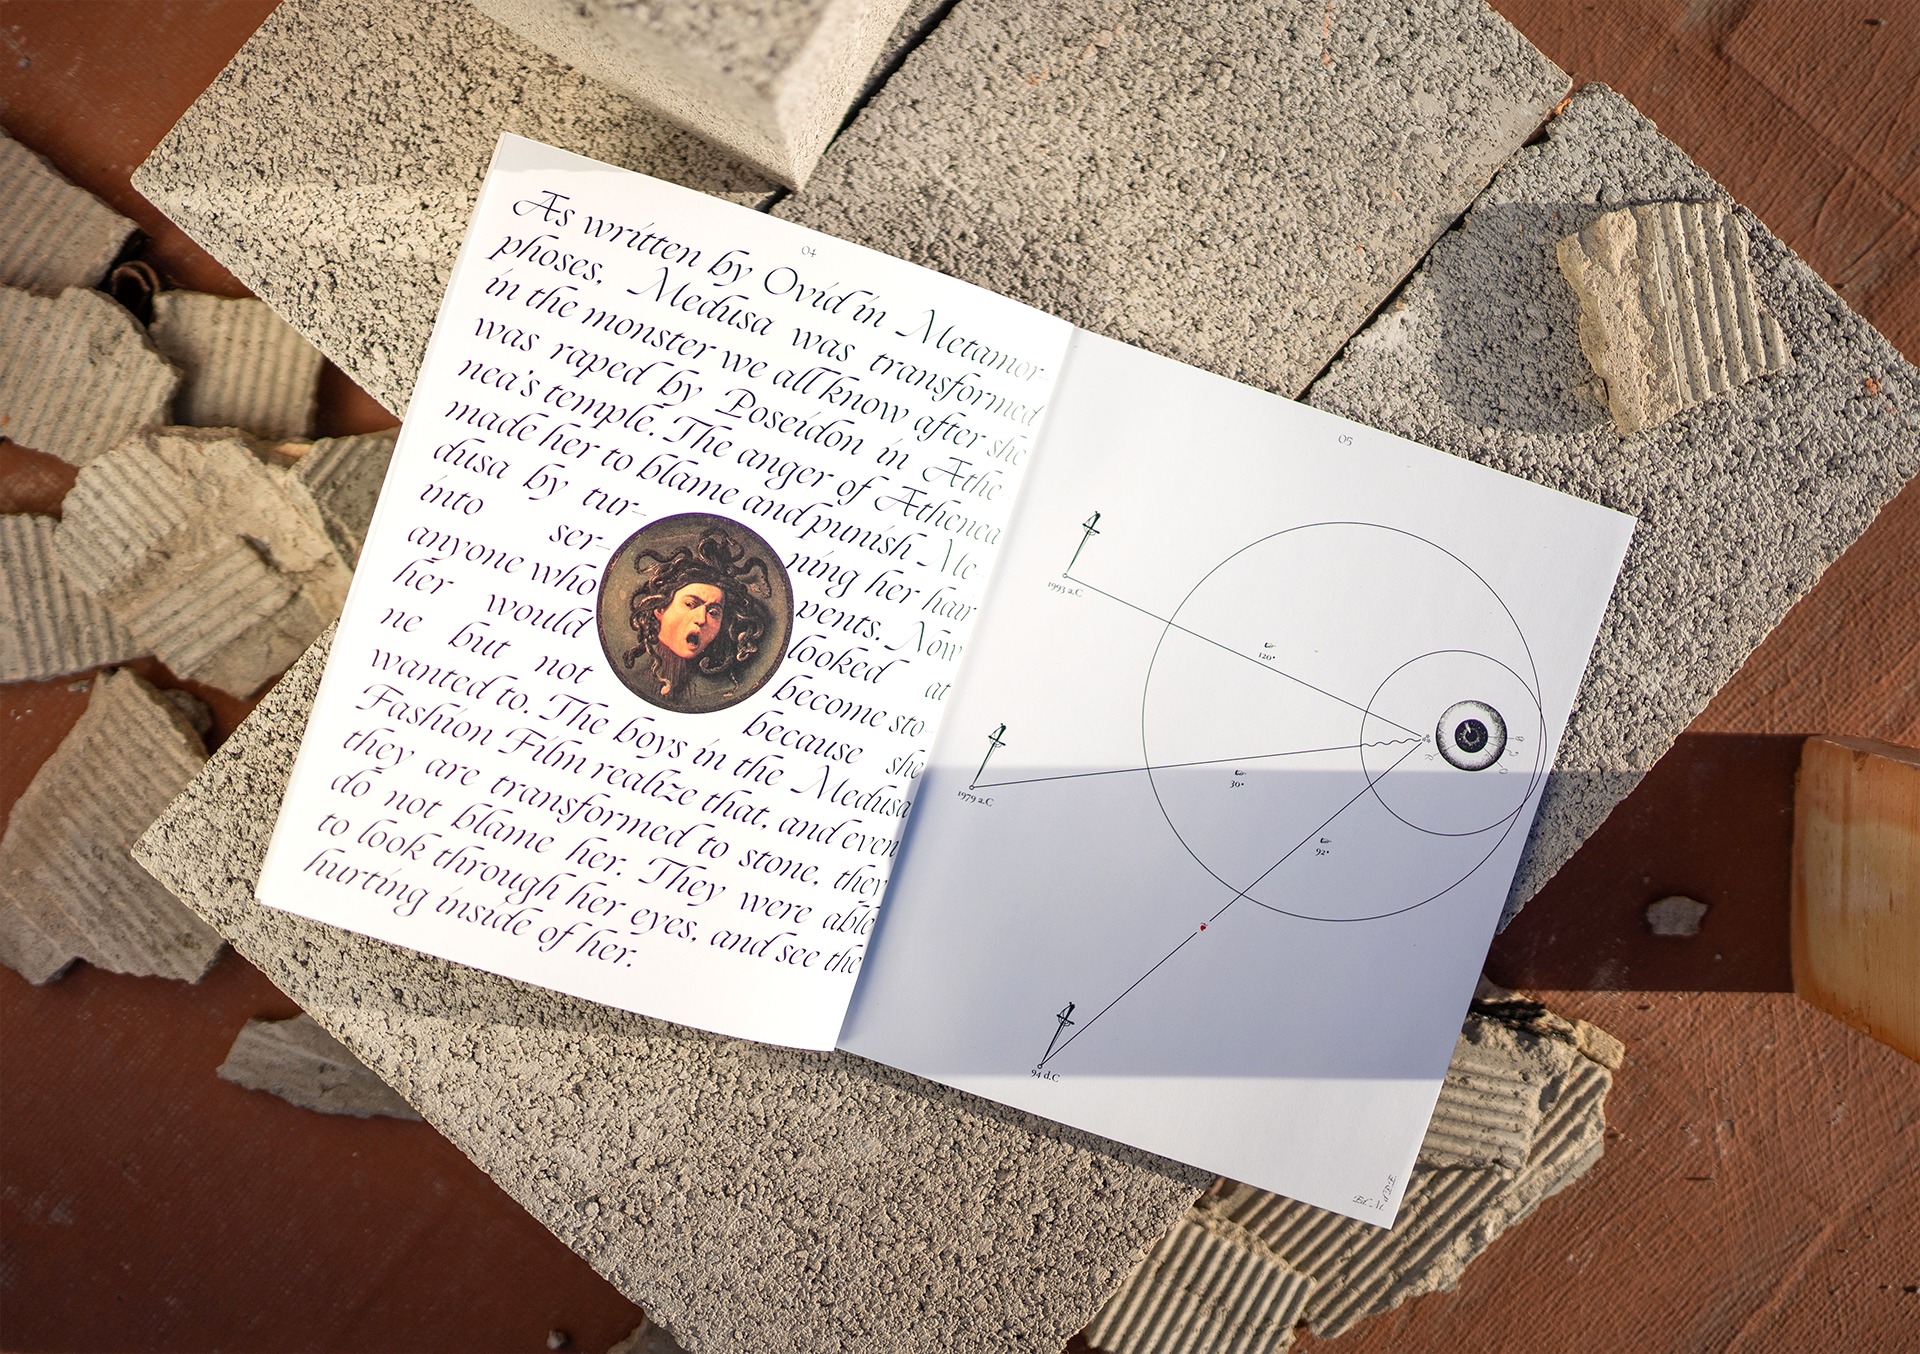 04
As written by Ovid in Metamor-
phoses, Medusa was transformed
in the monster we all know after she
was raped by Poseidon in Athe
nea's temple. The anger of Athenea
made her to blame and punish Me-
dusa by tur- ning her hair
into ser- pents. Now
anyone who looked at
her would become sto-
ne but not because she
wanted to. The boys in the Medusa
Fashion Film realize that, and even
they are transformed to stone, they
do not blame her. They were able
to look through her eyes, and see the
hurting inside of her.
05
1993 a.C
120°
1979 a.C
30°
92°
94 d.C